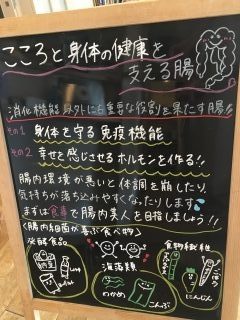 こころと身体の健康を
支える腸
消化機能以外にも重要な役割を果たす腸
その1 身体を守る免疫機能
その2 幸せを感じさせるホルモンを作る!!
腸内環境が悪いと体調を崩したり、
気持ちが落ち込みやすくなったりします
まずは食事で腸内美人を目指しましょう!!
<腸内細菌が喜ぶ食べ物>
発酵食品
海藻類
食物繊維
納豆
わかめ
こんぶ
ごぼう
にんじん